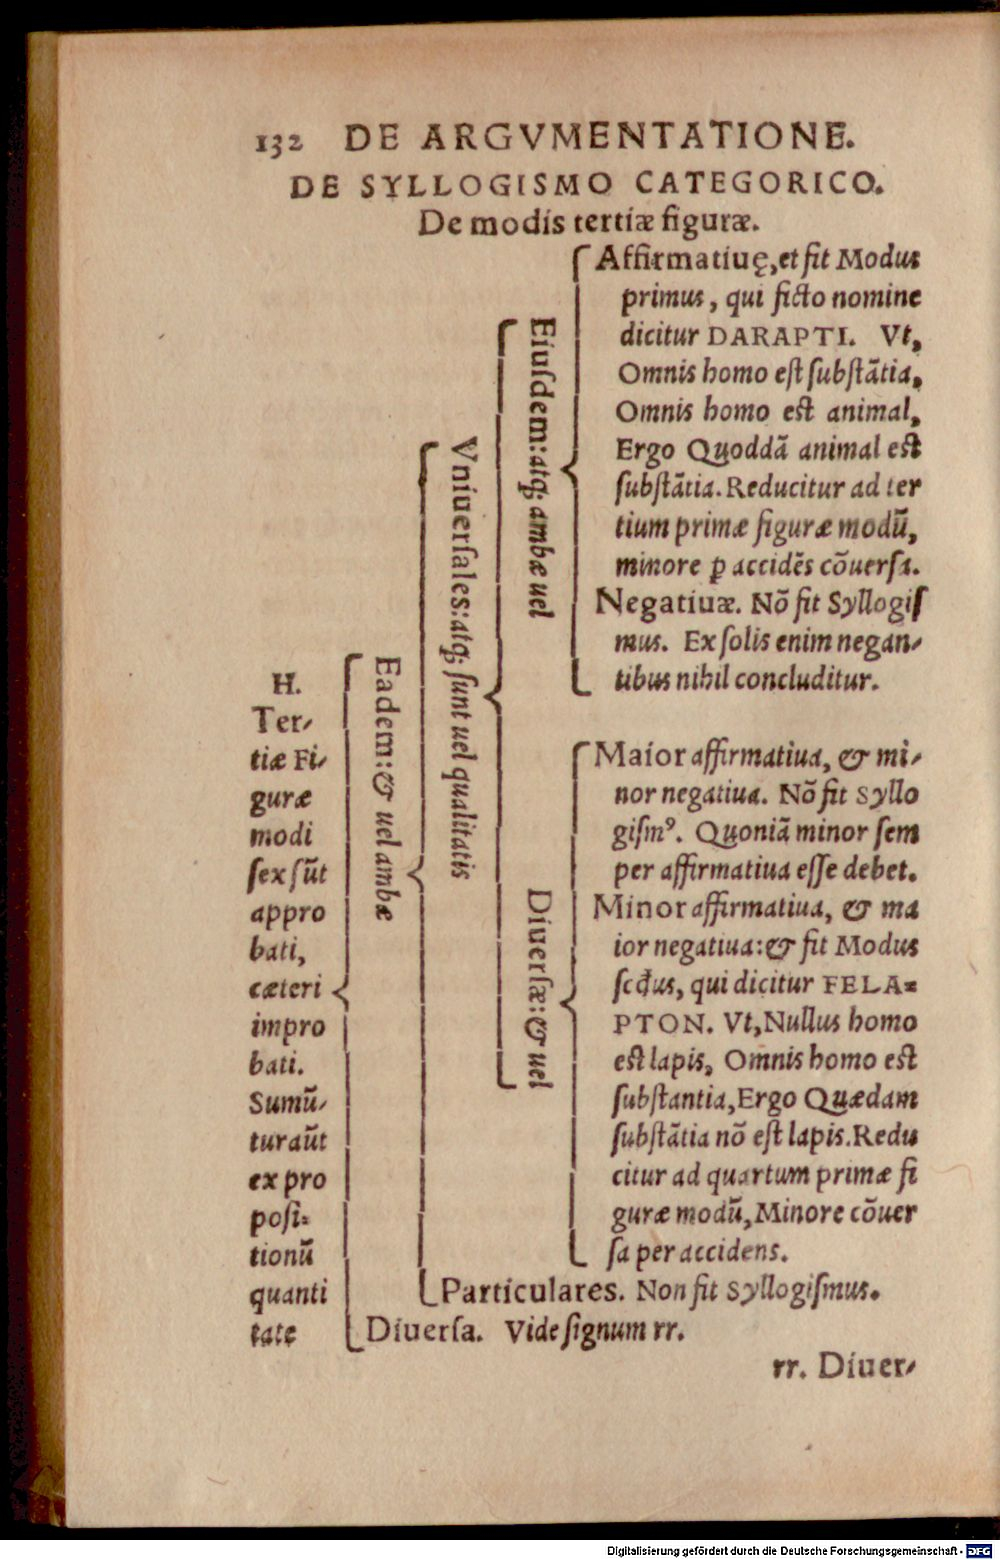 132 DE ARGVMENTATIONE.
DE SYLLOGISMO CATEGORICO.
De modis tertiæ figuræ.
H.
Ter-
tiæ Fi-
guræ
modi
ſex ſūt
appro
bati,
cæteri
impro
bati.
Sumū-
tur aūt
ex pro
poſi-
tionū
quanti
tate
Eadem: & uel ambæ
Vniuerſales: atq; ſunt uel qualitatis
Eiuſdem: atq; ambæ uel
Affirmatiuę, et fit Modus
primus, qui ficto nomine
dicitur DARAPTI. Vt,
Omnis homo eſt ſubſtātia,
Omnis homo est animal,
Ergo Quoddā animal est
ſubſtātia. Reducitur ad ter
tium primæ figuræ modū,
minore ꝑ accidēs cōuerſa.
Negatiuæ. Nō fit Syllogiſ
mus. Ex ſolis enim negan-
tibus nihil concluditur.
Diuerſæ: & uel
Maior affirmatiua, & mi-
nor negatiua. Nō fit Syllo
giſmꝰ. Quoniā minor ſem
per affirmatiua eſſe debet.
Minor affirmatiua, & ma
ior negatiua: & fit Modus
ſcđus, qui dicitur FELA-
PTON. Vt, Nullus homo
est lapis, Omnis homo est
ſubſtantia, Ergo Quædam
ſubſtātia nō eſt lapis. Redu
citur ad quartum primæ fi
guræ modū, Minore cōuer
ſa per accidens.
Particulares. Non fit Syllogiſmus.
Diuerſa. Vide ſignum rr.
rr. Diuer-
Digitalisierung gefördert durch die Deutsche Forschungsgemeinschaft - DFG